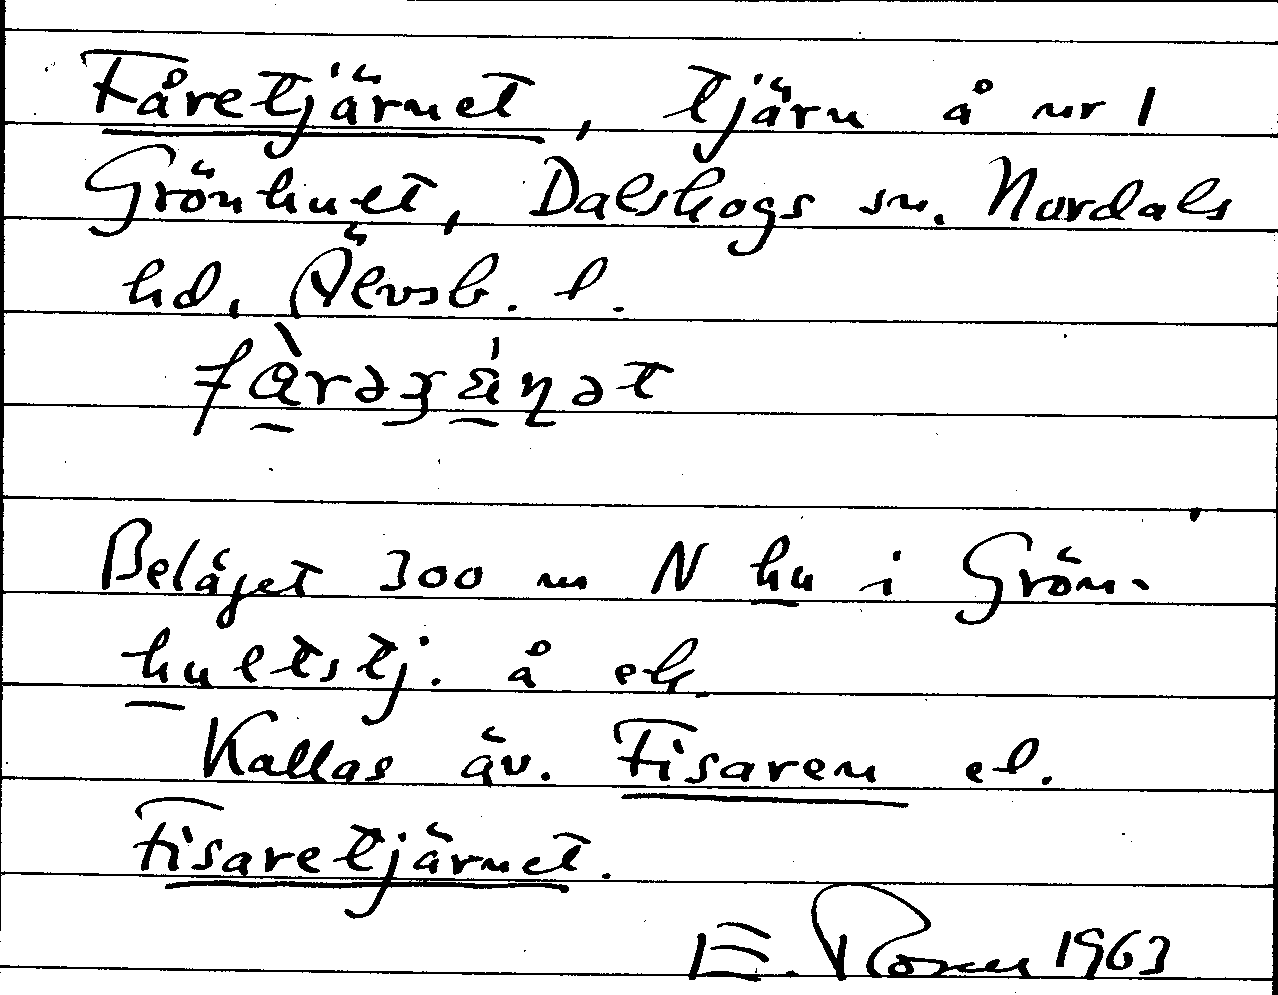 Fåretjärnet, tjärn å nr 1
Grönhult, Dalskogs sn. Nordals
hd, Älvsb. l.
Beläget 300 m N hu i Grön-
hultstj. å ek.
Kallas äv. Fisaren el.
Fisaretjärnet.
E. Rosell 1963